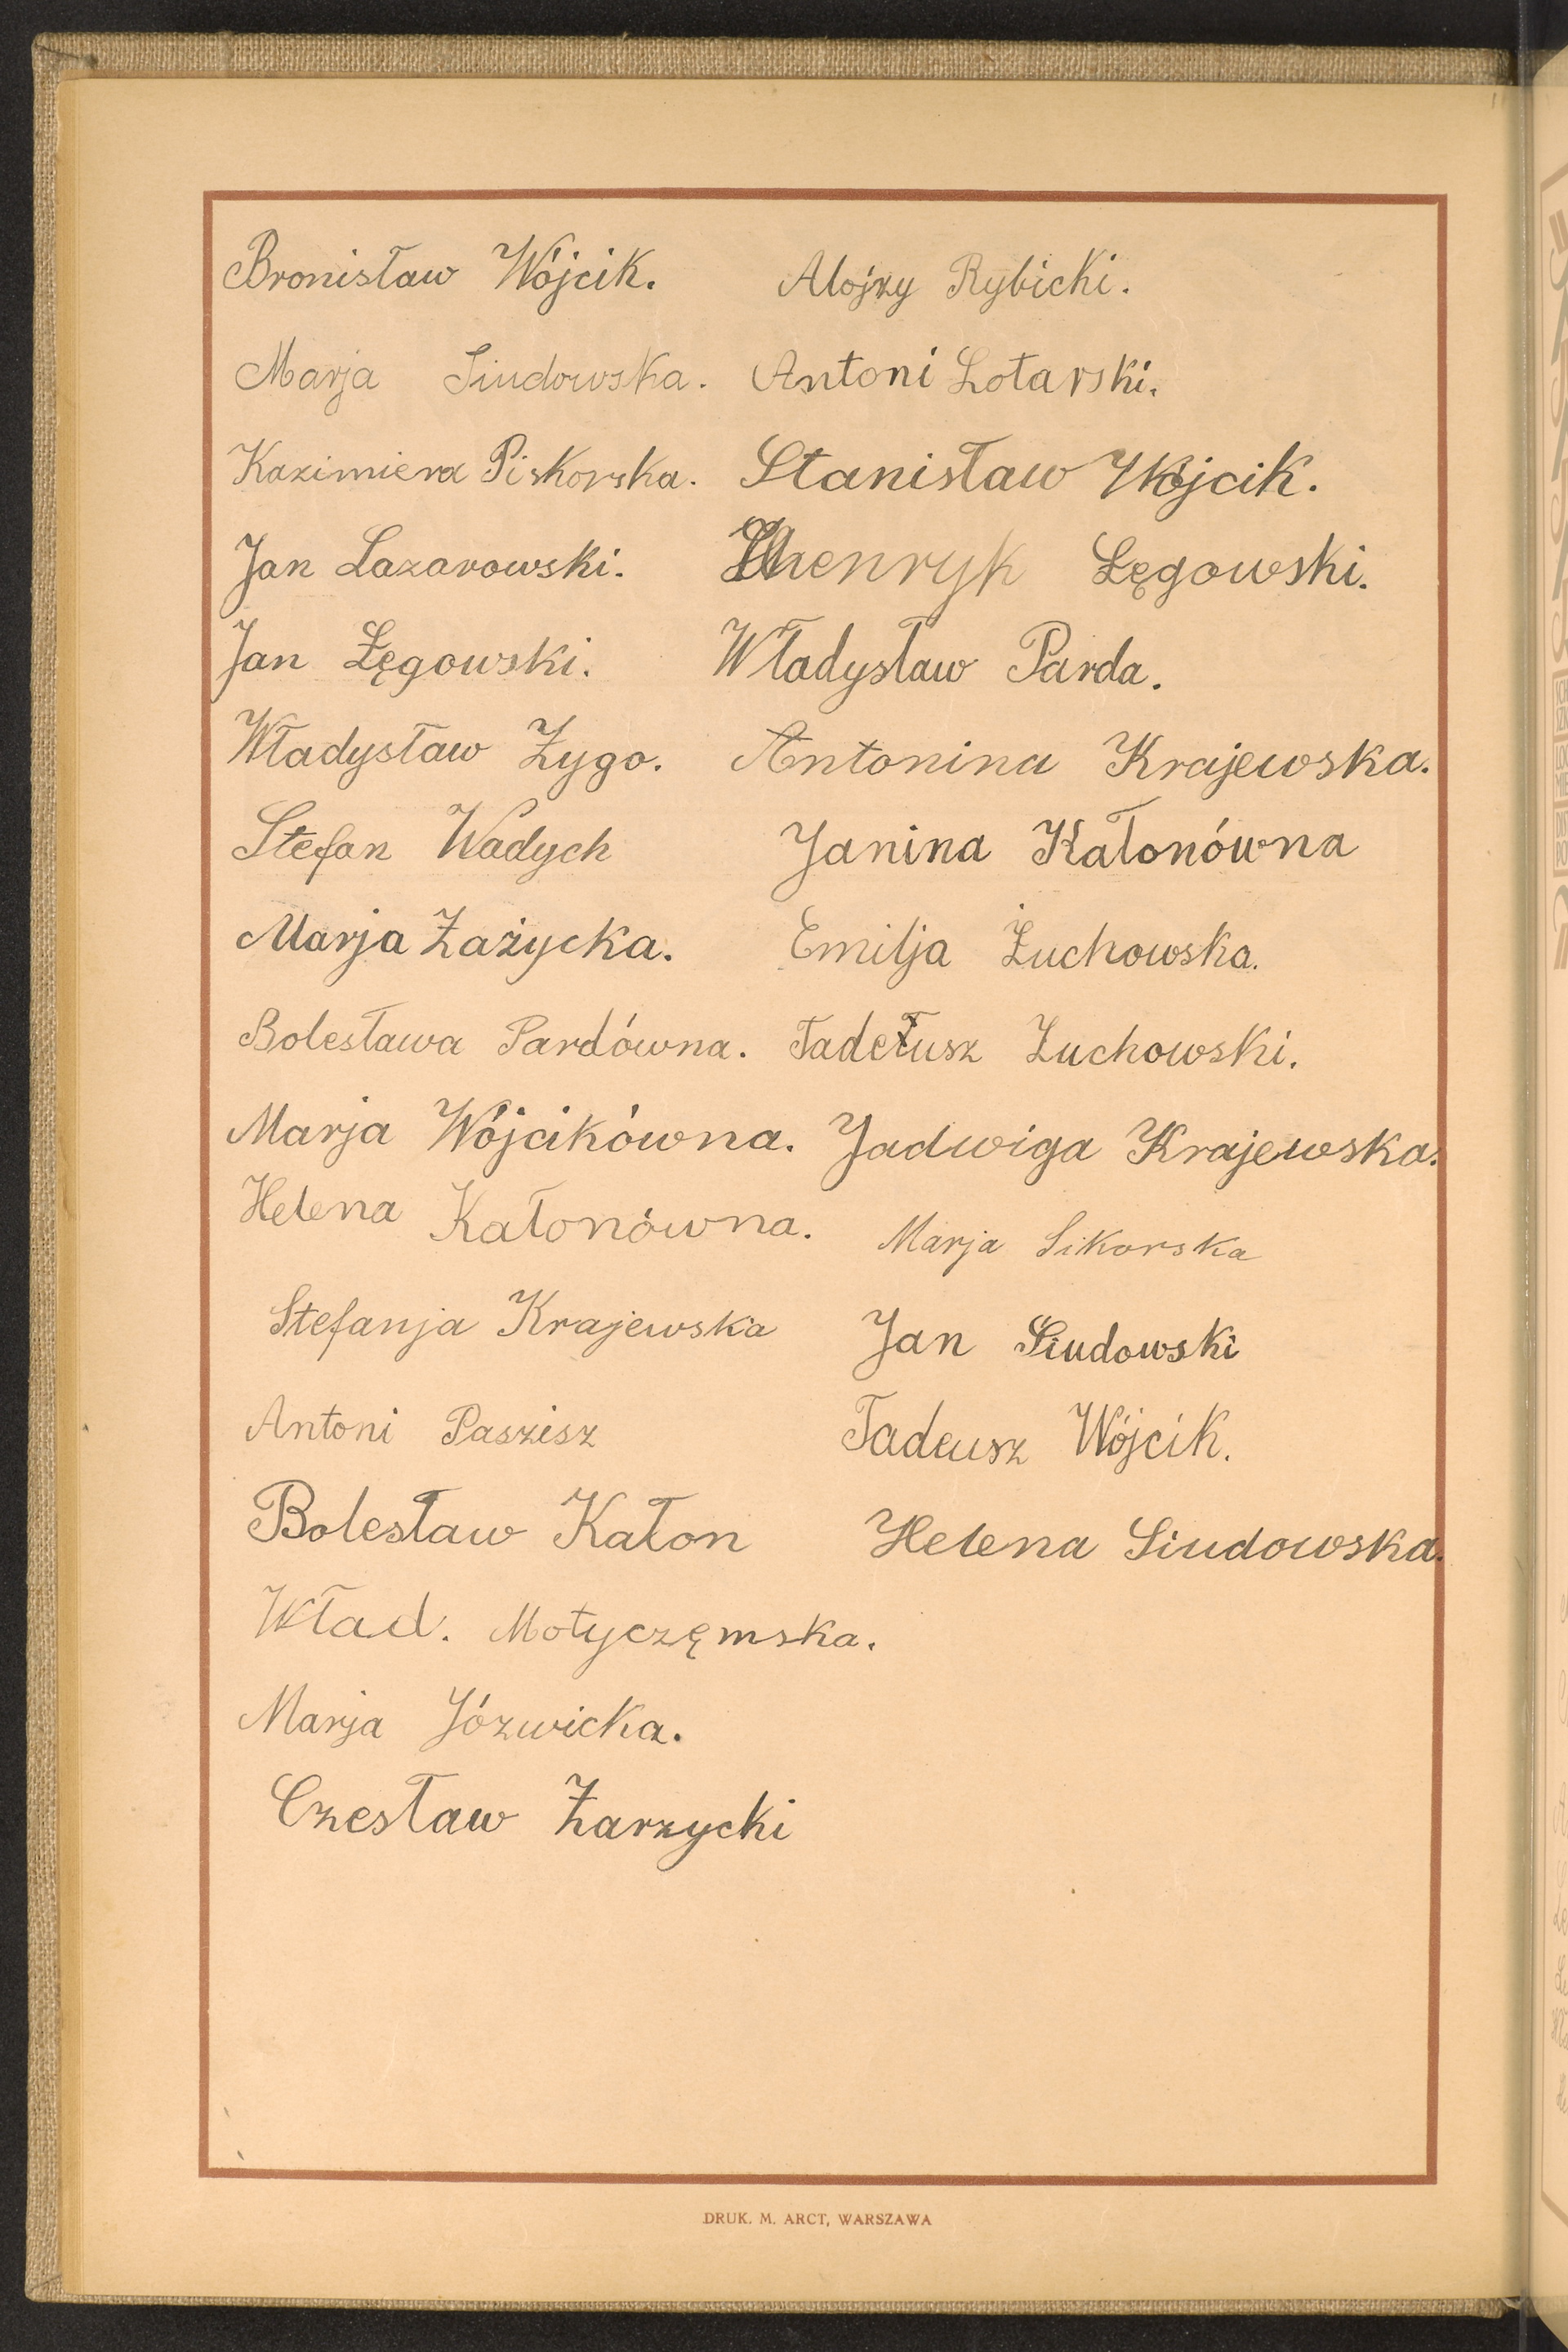 Bronisław Wójcik. Alojzy Rybicki.
Marja Siudowska. Antoni Lotarski.
Kazimiera Piskorska. Stanisław Wójcik.
Jan Lazarowski. Henryk Łęgowski.
Jan Łęgowski. Władysław Parda.
Władysław Zygo. Antonina Krajewska.
Stefan Wadych Janina Kałonówna
Marja Zażycka. Emilja Żuchowska.
Bolesława Pardówna. Tadeusz Zuchowski.
Marja Wójcikówna. Jadwiga Krajewska.
Helena Kałonówna. Marja Sikorska
Stefanja Krajewska Jan Siudowski
Antoni Paszisz Tadeusz Wójcik.
Bolesław Kałon Helena Siudowska.
Wład. Motyczęmska.
Marja Józwicka.
Czesław Zarzycki
DRUK. M. ARCT, WARSZAWA